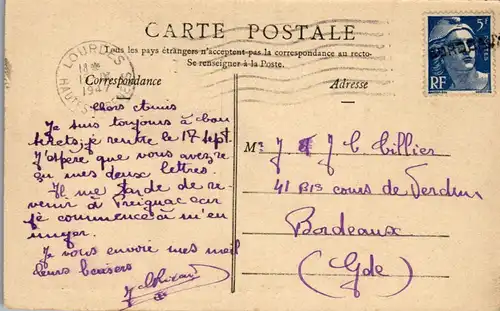 CARTE POSTALE
Tous les pays étrangers n'acceptent pas la correspondance au recto-
Se renseigner à la Poste.
Correspondance
Adresse
LOURDES
1947
HAUTES
5F
RF
Chers Amis
Je suis toujours à
je rentre le 17 sept.
J'espère que vous avez re
çu mes deux lettres.
Il me tarde de re-
venir à Preignac car
je commence à m'en
nuyer.
Je vous envoie mes meil
leurs baisers
J
Mr J J C. Cillier
41 Bis cours de Verdun
Bordeaux
(Gde)